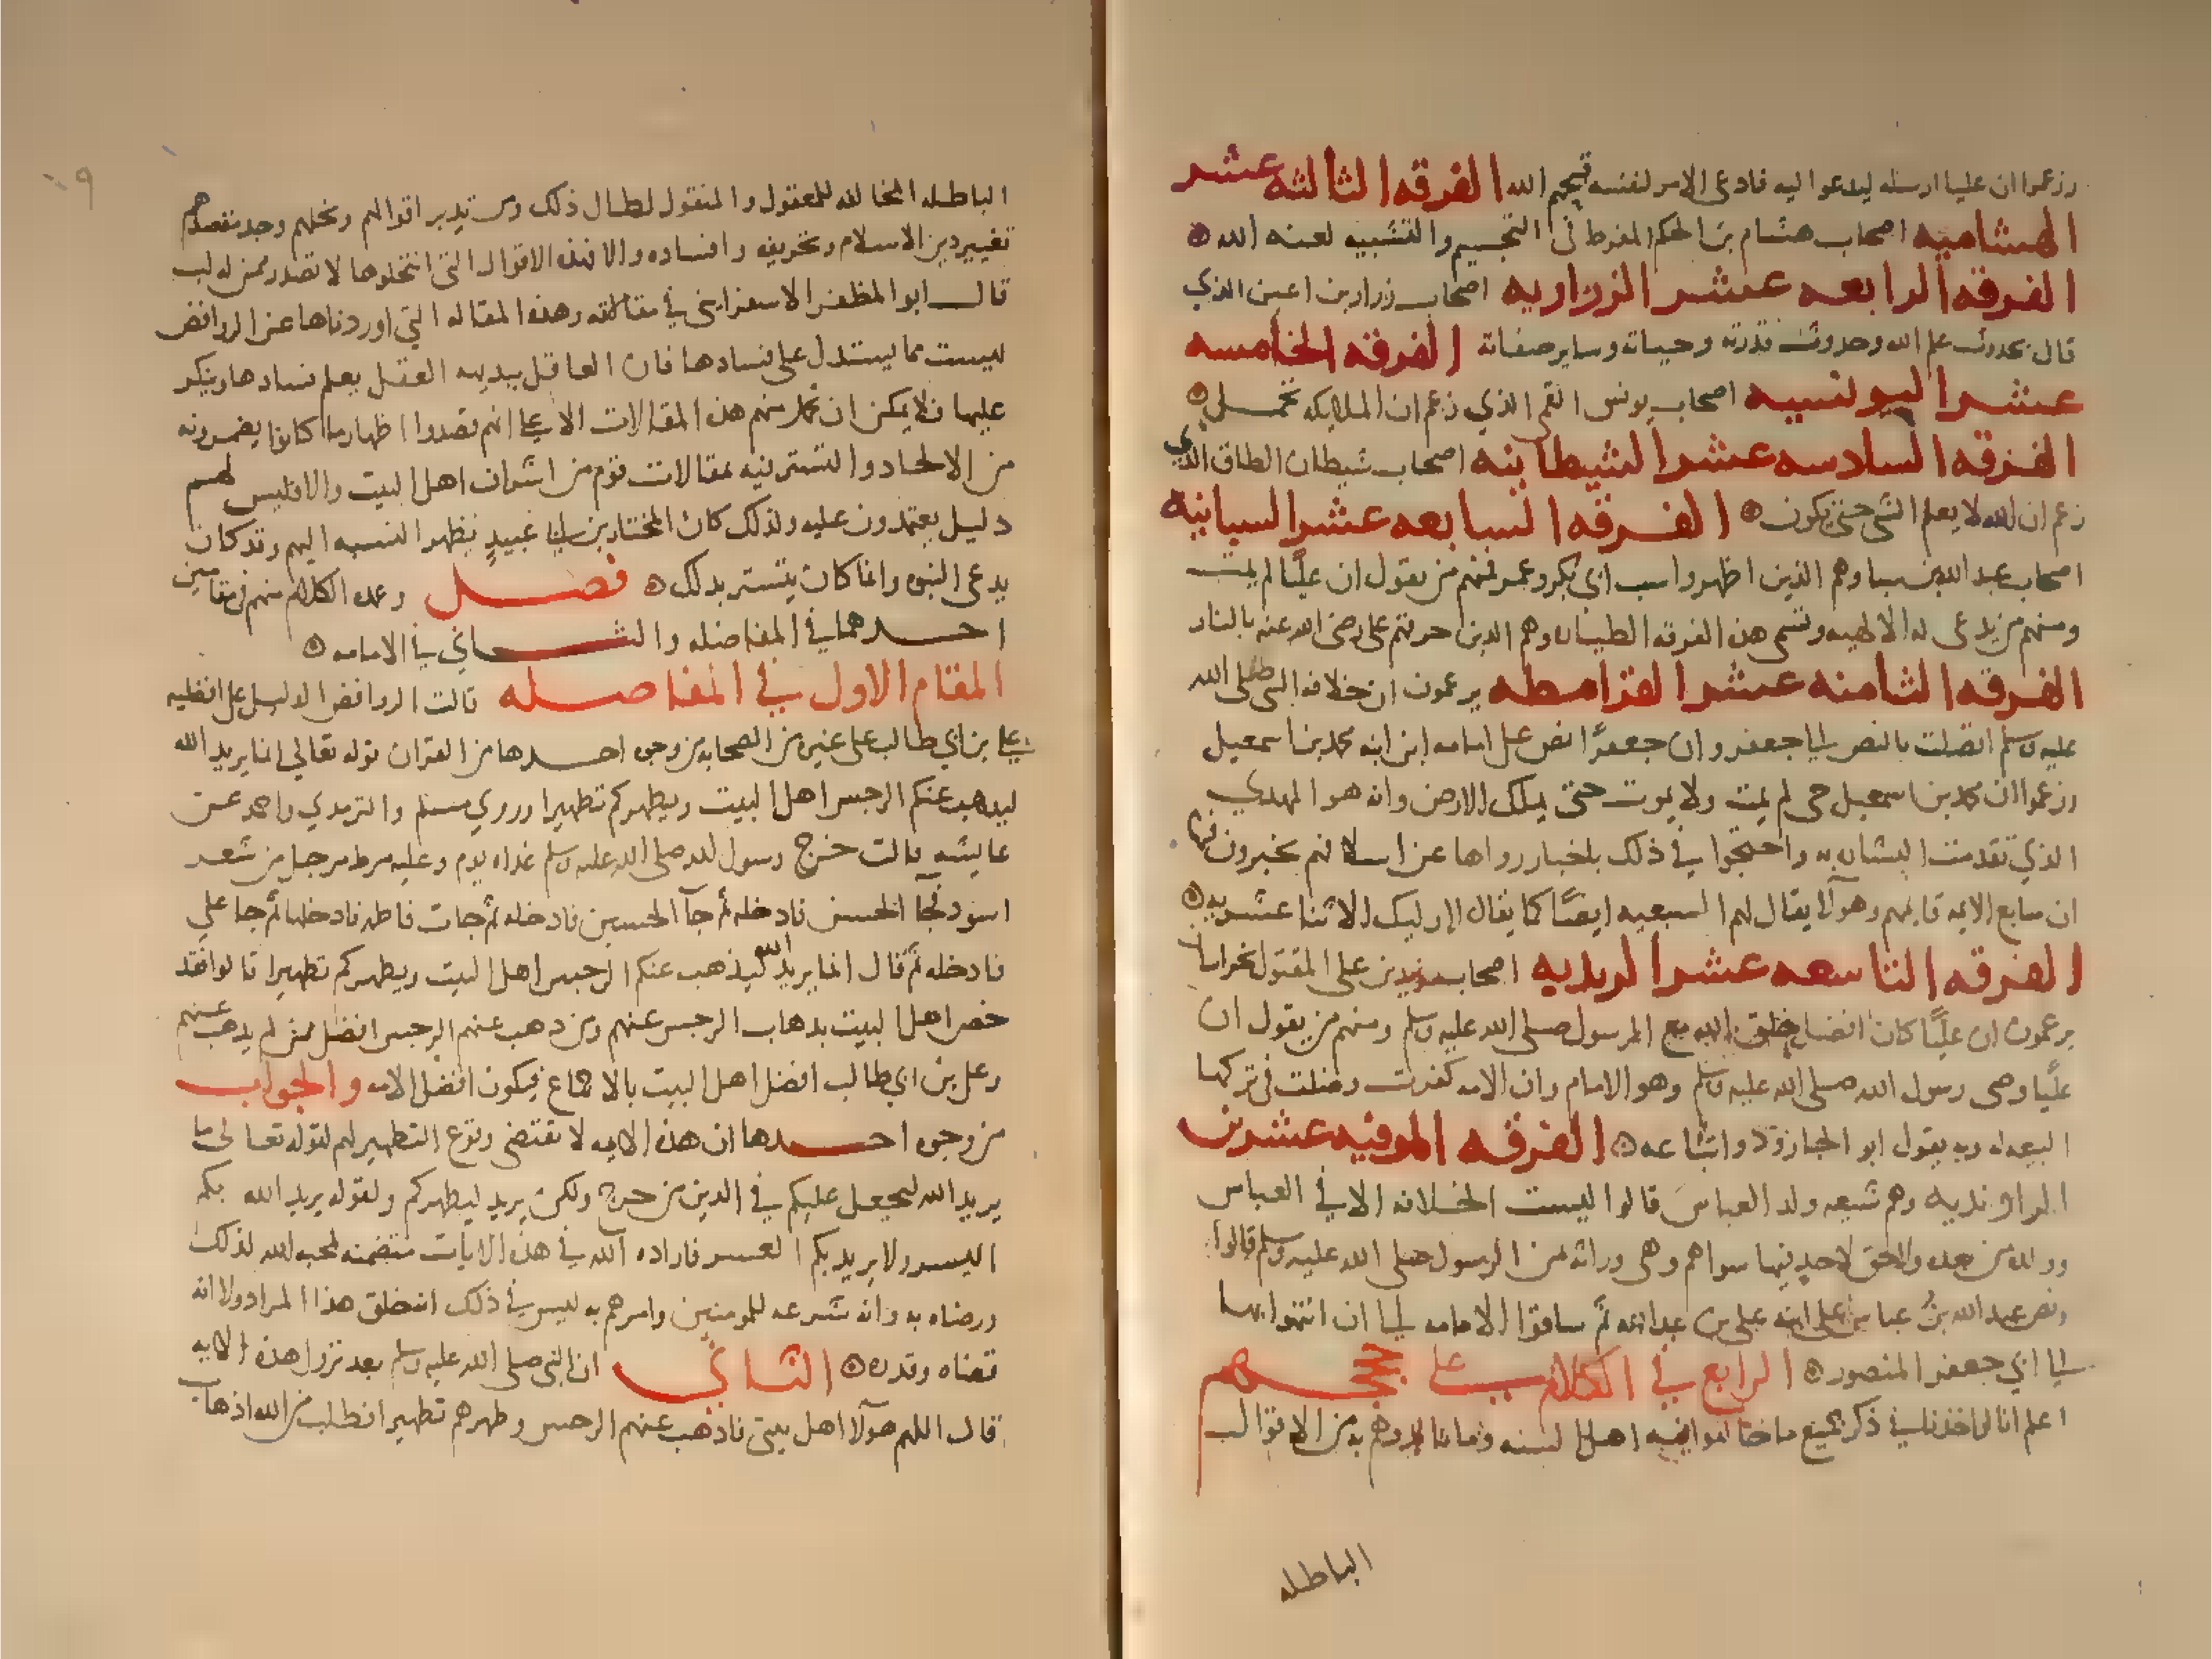 وزعموا ان عليا ارسله ليدعوا اليه فادعى الامر لنفسه قبحهم الله الفرقه الثالثه عشر
الهشاميه اصحاب هشام بن الحكم المفرط في التجسيم والتشبيه لعنه الله
الفرقه الرابعه عشر الزراريه اصحاب زراره بن اعين الذي
قال بحدوث علم الله وحدوث قدرته وحياته وساير صفاته الفرقه الخامسه
عشر اليونسيه اصحاب يونس القمي الذي زعم ان الملايكه تحمل
الفرقه السادسه عشر الشيطانيه اصحاب شيطان الطاق الذي
زعم ان الله لا يعلم الشي حتى يكون الفرقه السابعه عشر السبائيه
اصحاب عبد الله بن سبا وهم الذين اظهروا سب ابي بكر وعمر فمنهم من يقول ان عليًا لم يمت
ومنهم من يدعى له الالهيه وتسمى هذه الفرقه الطياره وهم الذين حرقهم على رضى الله عنه بالنار
الفرقه الثامنه عشر القرامطه يزعمون ان خلافه النبي صلى الله
عليه وسلم اتصلت بالنص الى جعفر وان جعفرًا نص على امامه ابن ابنه محمد بن اسمعيل
وزعموا ان محمد بن اسمعيل حي لم يمت ولا يموت حتى يملك الارض وانه هو المهدي
الذي تقدمت البشاره به واحتجوا في ذلك باخبار رواها عن اسلافهم يخبرون فيها
ان سابع الايمه قايمهم وهولآ يقال لهم السبعيه ايضًا كما يقال لاوليك الاثنا عشريه
الفرقه التاسعه عشر الزيديه اصحاب زيد بن على المقتول بخراسان
يزعمون ان عليًا كان افضل خلق الله مع الرسول صلى الله عليه وسلم ومنهم من يقول ان
عليًا وصى رسول الله صلى الله عليه وسلم وهو الامام وان الامه كفرت وضلت في تركها
البيعه له وبه يقول ابو الجارود واتباعه الفرقه الموفيه عشرين
الراوانديه وهم شيعه ولد العباس قالوا ليست الخلافه الا في العباس
وولده من بعده ولا حق لاحد فيها سواهم وهي وراثه من الرسول صلى الله عليه وسلم قالوا
ونص عبد الله بن عباس على ابنه على بن عبد الله ثم ساقوا الامامه الى ان انتهوا بها
الى ابي جعفر المنصور الرابع في الكلام على حججهم
اعلم انا لو اخذنا في ذكر جميع ما خالفوا فيه اهل السنه وما انفردوهم به من الاقوال
الباطله
الباطله المخالفه للمعقول والمنقول لطال ذلك ومن تدبر اقوالهم ونحلهم وجد مقصدهم
تغيير دين الاسلام وتحريفه وافساده والا فهذه الاقوال التي انتحلوها لا تصدر ممن له لب
قال ابو المظفر الاسفرايني في مقالاته وهذه المقاله التي اوردناها عن الروافض
ليست مما يستدل على فسادها فان العاقل ببديهه العقل يعلم فسادها وينكر
عليها فلا يمكن ان تحمل منهم هذه المقالات الا على انهم قصدوا اظهار ما كانوا يضمرونه
من الالحاد والتستر فيه بمقالات قوم من اشراف اهل البيت والا فليس لهم
دليل يعتمدون عليه ولذلك كان المختار بن ابي عبيد يظهر النسبه اليهم وقد كان
يدعى النبوه وانما كان يتستر بذلك فصل وعمده الكلام منهم في مقامين
احدهما في المفاضله والثاني في الامامه
المقام الاول في المفاضله قالت الروافض الدليل على افضليه
على بن ابي طالب على غيره من الصحابه من وجوه احدها من القران قوله تعالى انما يريد الله
ليذهب عنكم الرجس اهل البيت ويطهركم تطهيرا وروي مسلم والترمدي واحمد عن
عايشه قالت خرج رسول الله صلى الله عليه وسلم غداه يوم وعليه مرط مرجل من شعر
اسود فجآ الحسن فادخله ثم جآ الحسين فادخله ثم جات فاطمه فادخلها ثم جا علي
فادخله ثم قال انما يريد الله ليذهب عنكم الرجس اهل البيت ويطهركم تطهيرا قالوا فقد
خص اهل البيت بذهاب الرجس عنهم ومن ذهب عنهم الرجس افضل ممن لم يذهب عنهم
وعلى بن ابي طالب افضل اهل البيت بالاجماع فيكون افضل الامه والجواب
من وجوه احدها ان هذه الايه لا تقتضي وقوع التطهير لهم لقوله تعالى ما
يريد الله ليجعل عليكم في الدين من حرج ولكن يريد ليطهركم ولقوله يريد الله بكم
اليسر ولا يريد بكم العسر فاراده الله في هذه الايات متضمنه لمحبه الله لذلك
ورضاه به وانه شرعه للمومنين وامرهم به ليس في ذلك انه خلق هذا المراد ولا انه
قضاه وقدره الثاني ان النبي صلى الله عليه وسلم بعد نزول هذه الايه
قال اللهم هولآ اهل بيتي فاذهب عنهم الرجس وطهرهم تطهيرا فطلب من الله اذهاب